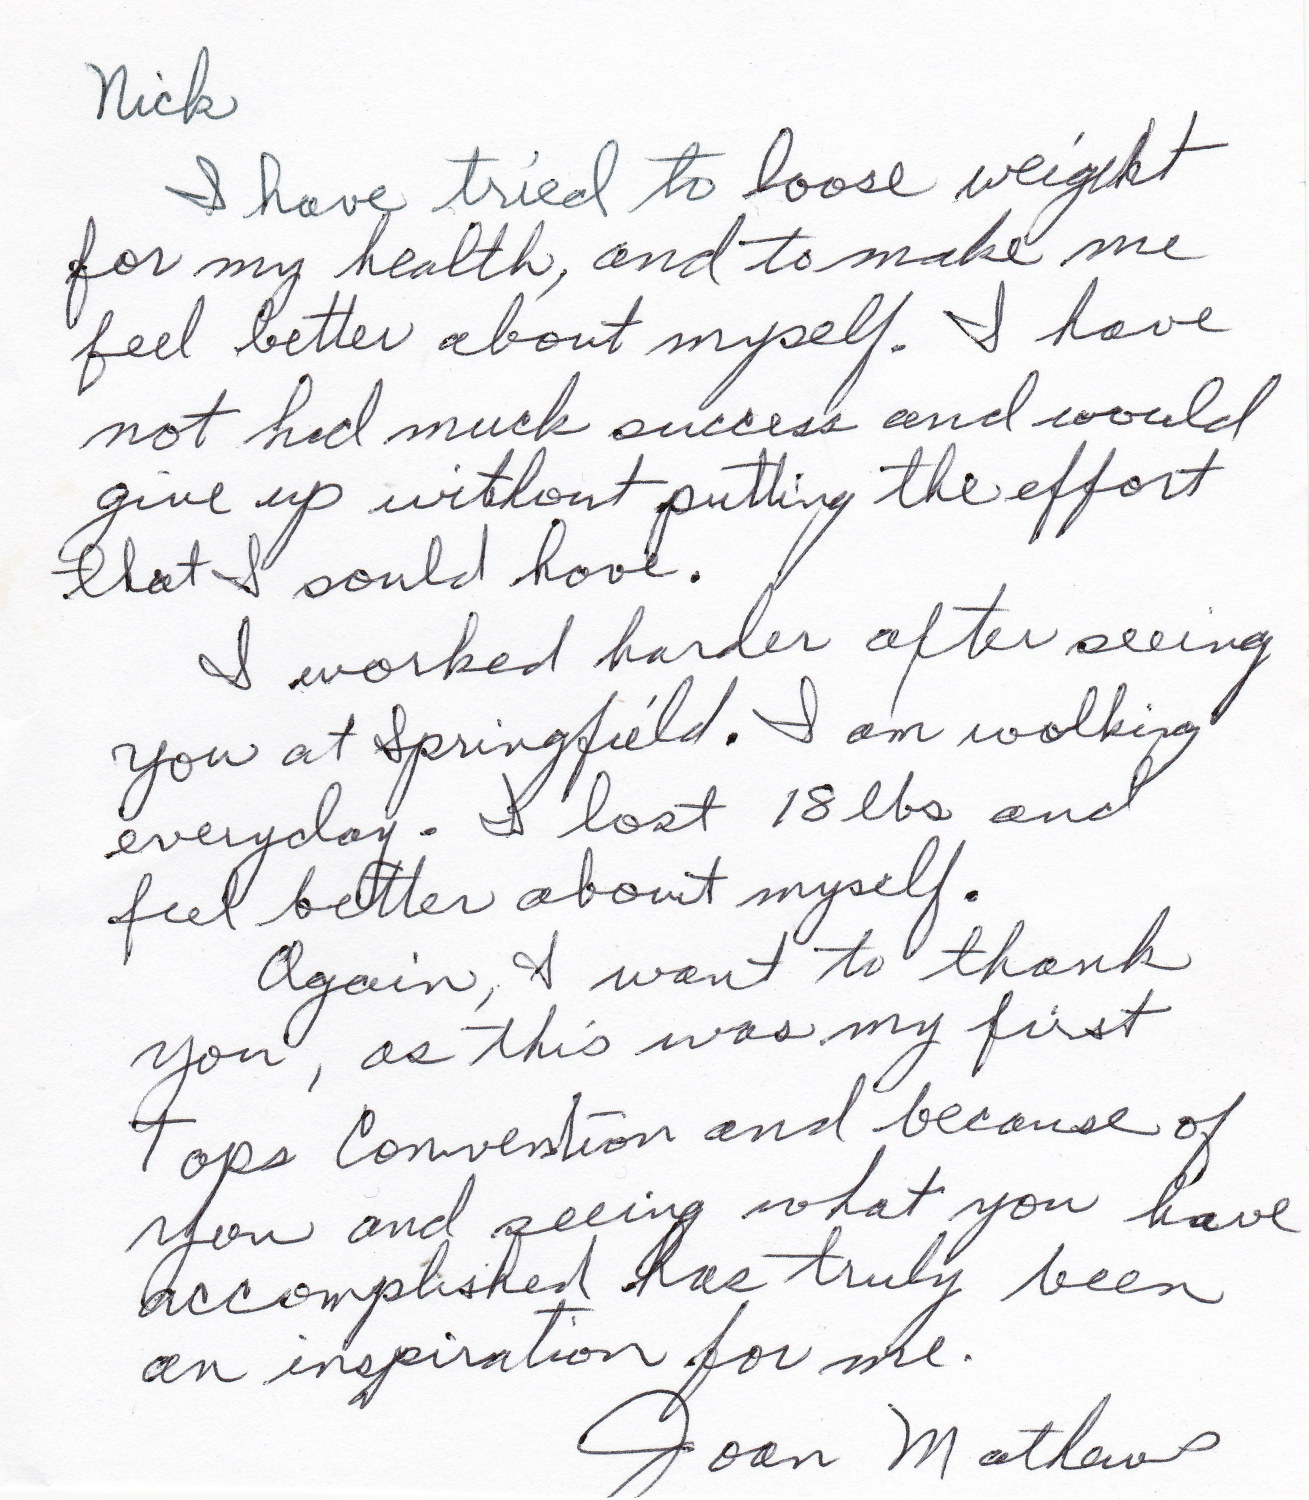 Nick
I have tried to loose weight
for my health, and to make me
feel better about myself. I have
not had much success and would
give up without putting the effort
that I sould have.
I worked harder after seeing
you at Springfield. I am walking
everyday. I lost 18 lbs and
feel better about myself.
Again, I want to thank
you, as this was my first
Tops Convention and because of
you and seeing what you have
accomplished has truly been
an inspiration for me.
Joan Mathews